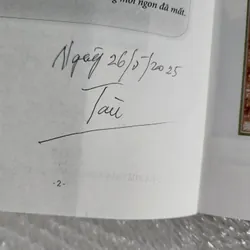 mới ngon đã mất.
Ngày 26/5/2025
Tài
-2-